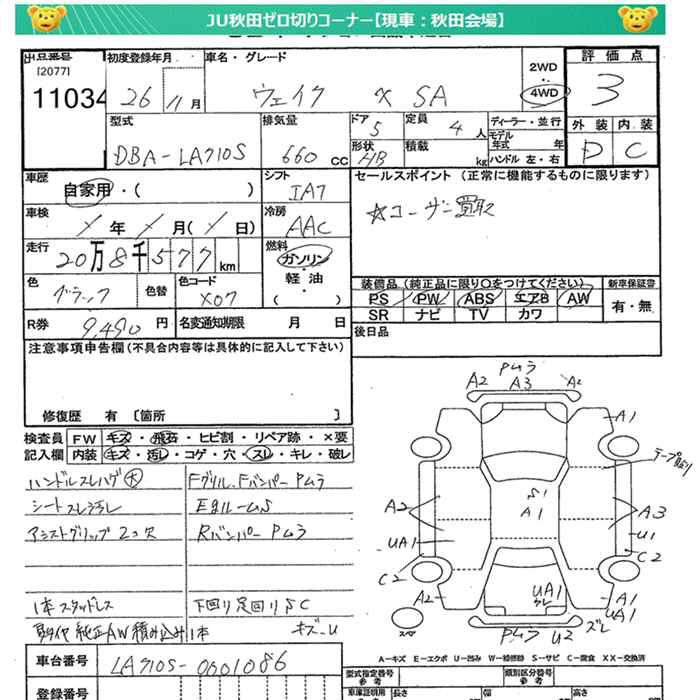 JU秋田ゼロ切りコーナー【現車：秋田会場】
出品番号 初度登録年月 車名・グレード 2WD 評価点
[2077]
11034 26 11月 ウェイク X SA 4WD 3
型式 排気量 ドア 定員 ディーラー・並行 外装 内装
5 4人 モデル年式 年
DBA-LA710S 660cc 形状 HB 積載 kg ハンドル 左・右 D C
車歴 シフト セールスポイント (正常に機能するものに限ります)
自家用・( ) IA7
☆ユーザー買取
車検 年 月( 日) 冷房 AAC
走行 燃料
20万8千577km ガソリン・軽油・( )
色 色替 色コード 装備品 (純正品に限り○をつけてください) 新車保証書
ブラック X07 PS PW ABS エアB AW 有・無
SR ナビ TV カワ
R券 9,490円 名変通知期限 月 日 後日品
注意事項申告欄 (不具合内容等は具体的に記入して下さい)
修復歴 有 〔箇所 〕
検査員 FW キズ・飛石・ヒビ割・リペア跡・×要
記入欄 内装 キズ・汚レ・コゲ・穴・スレ・キレ・破レ
ハンドルスレハゲ大 Fグリル、Fバンパー Pムラ
シートスレ汚レ EgルームS
アシストグリップ2コ欠 Rバンパー Pムラ
1本スタッドレス 下回り足回りSC
夏タイヤ 純正AW積み込み1本 キズ-U
Pムラ
A2 A3 A2
A1
テープ貼り
S1
A1
A2 A3
UA1 U1
C2 C2
A2 UA1 A1
スレ UA1
スペア Pムラ U2 ズレ
A-キズ E-エクボ U-凹み W-補修跡 S-サビ C-腐食 XX-交換済
車台番号 LA710S-0001086
型式指定番号 参考 類別区分番号 参考
登録番号 車庫証明用 参考 長さ 幅 高さ